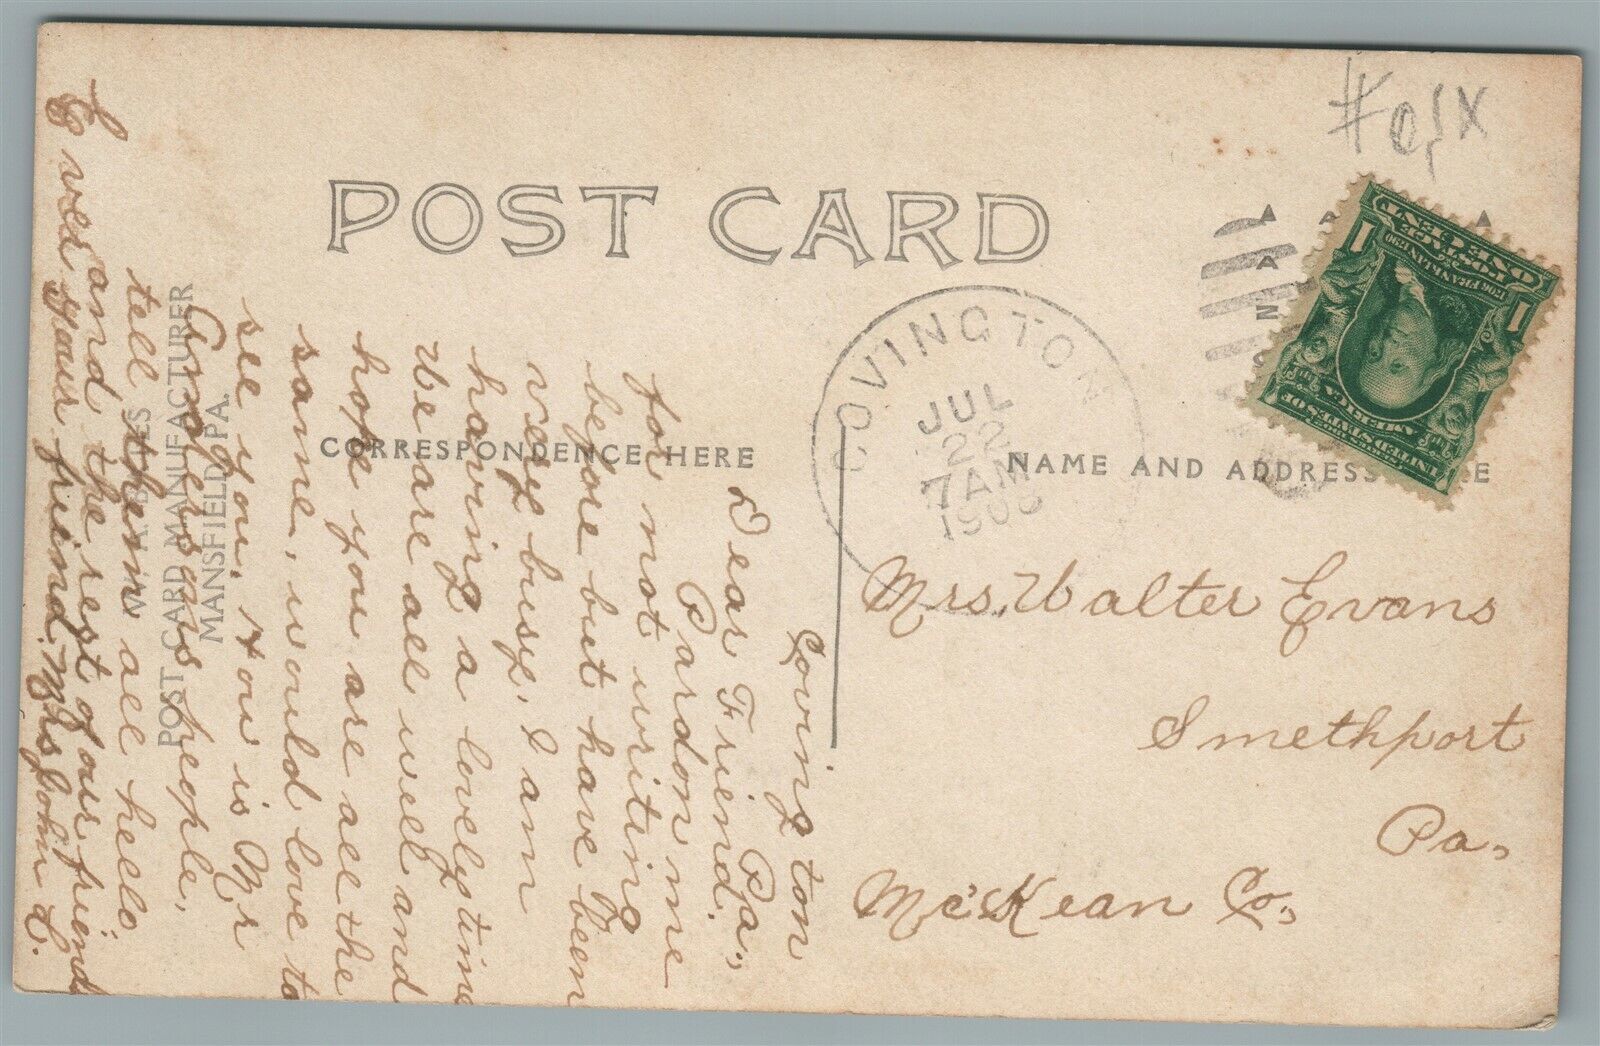 #
POST CARD
COVINGTON
JUL
22
7 AM
1908
SERIES 1902
UNITED STATES OF
AMERICA
1706 FRANKLIN 1790
POSTAGE
ONE CENT
1 1
CORRESPONDENCE HERE
NAME AND ADDRESS
POST CARD MANUFACTURER
MANSFIELD, PA.
Mrs. Walter Evans
Smethport
Pa.
McKean Co.,
Covington Pa.,
Dear Friend.
Pardon me
for not writing
before but have been
very busy, I am
having a lovely time
We are all well and
hope you are all the
same, would love to
see you, How is Mr
people,
tell them all hello
and the rest of our friend
your friend, Mrs John C.